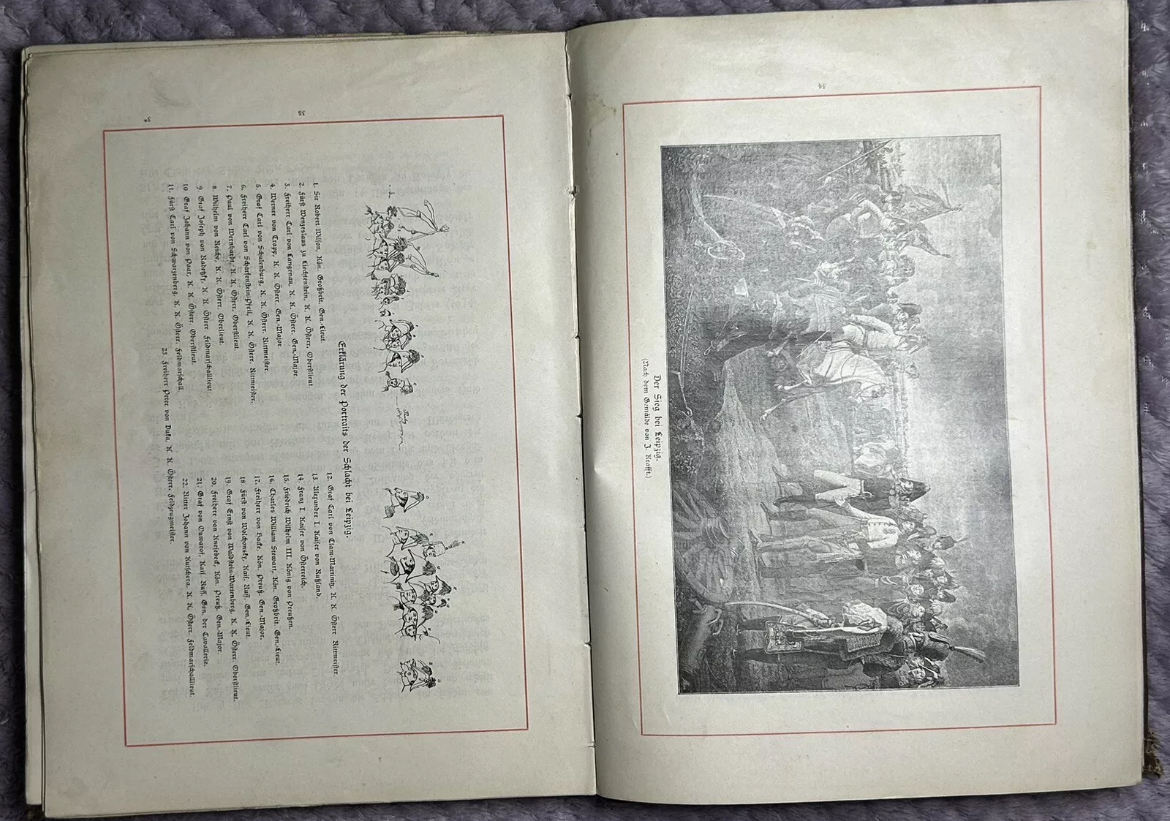 34
Der Sieg bei Leipzig.
(Nach dem Gemälde von J. Krafft.)
35
Erklärung der Portraits der Schlacht bei Leipzig.
1. Sir Robert Wilson, Kön. Großbrit. Gen.-Lieut.
2. Fürst Wenzeslaus zu Liechtenstein, K. K. Österr. Oberstlieut.
3. Freiherr Carl von Langenau, K. K. Österr. Gen.-Major.
4. Werner von Trapp, K. K. Österr. Gen.-Major.
5. Graf Carl von Schulenburg, K. K. Österr. Rittmeister.
6. Freiherr Carl von Scharfenstein-Pfeil, K. K. Österr. Rittmeister.
7. Paul von Wernhardt, K. K. Österr. Oberstlieut.
8. Wilhelm von Reiche, K. K. Österr. Oberlieut.
9. Graf Joseph von Radetzky, K. K. Österr. Feldmarschalllieut.
10. Graf Johann von Paar, K. K. Österr. Oberstlieut.
11. Fürst Carl von Schwarzenberg, K. K. Österr. Feldmarschall.
12. Graf Carl von Clam-Martinitz, K. K. Österr. Rittmeister
13. Alexander I. Kaiser von Rußland.
14. Franz I. Kaiser von Österreich.
15. Friedrich Wilhelm III. König von Preußen.
16. Charles William Stewart, Kön. Großbrit. Gen.-Lieut.
17. Freiherr von Hacke, Kön. Preuß. Gen.-Major.
18. Fürst von Wolchonsky, Kais. Russ. Gen.-Lieut.
19. Graf Ernst von Waldstein-Wartenberg, K. K. Österr. Oberstlieut.
20. Freiherr von Knesebeck, Kön. Preuß. Gen.-Major.
21. Graf von Ouwarof, Kais. Russ. Gen. der Cavallerie.
22. Ritter Johann von Kutschera, K. K. Österr. Feldmarschalllieut.
23. Freiherr Peter von Duka, K. K. Österr. Feldzeugmeister.